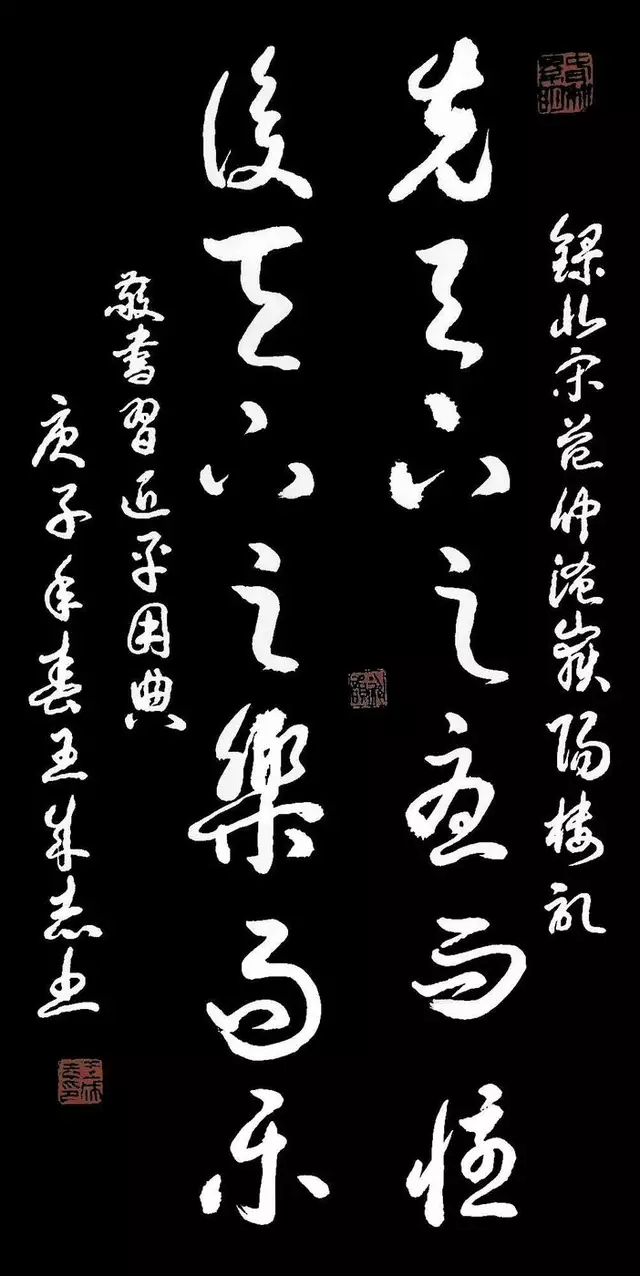 録北宋范仲淹嶽陽樓記
先天下之憂而懮
後天下之樂而乐
敬書習近平用典
庚子年春王成志书